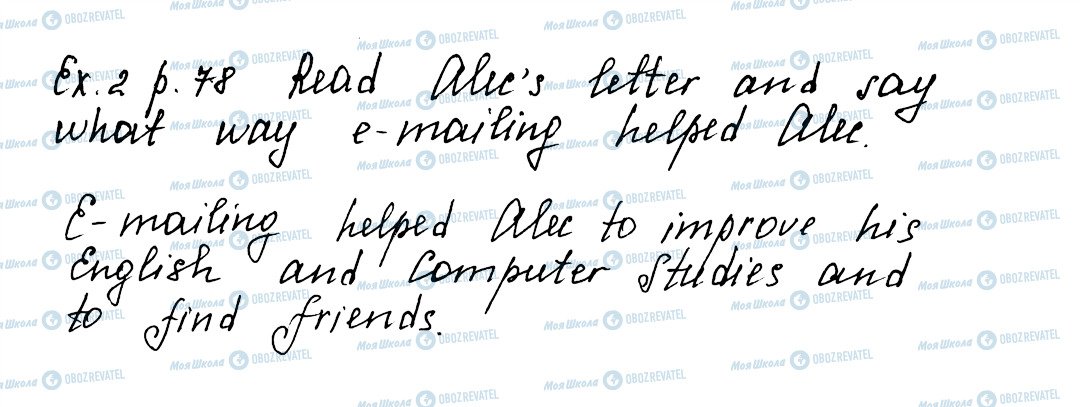 Ex. 2 p. 78 Read Alec's letter and say
what way e-mailing helped Alec.
E-mailing helped Alec to improve his
English and Computer Studies and
to find friends.